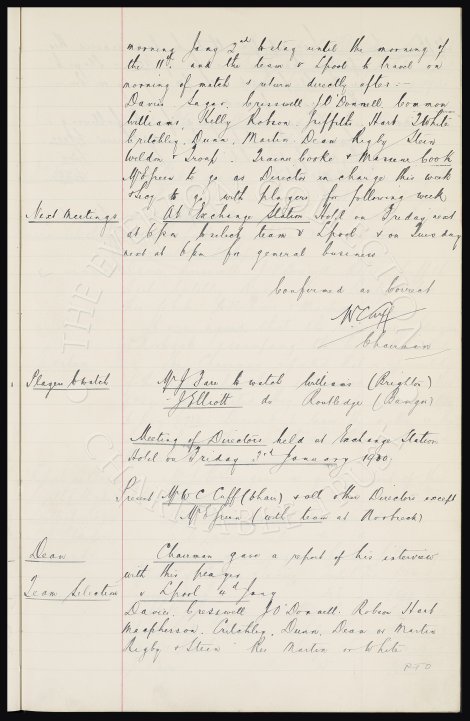 morning Jany 2nd to stay until the morning of
the 11th. and the team v L'pool to travel on
morning of match & return directly after.—
Davies Sagar. Cresswell J O'Donnell Common
Williams, Kelly Robson Griffiths Hart T White
Critchley, Dunn, Martin. Dean Rigby Stein
Weldon & Troup. Trainer Cooke & Masseur Cook
Mr Green to go as Director in charge this week
to go with players for following week
Next Meetings At Exchange Station Hotel on Friday next
at 6 pm to select team v L'pool & on Tuesday
next at 6 pm for general business
Confirmed as Correct
W C Cuff
Chairman
Players to watch Mr J Fare to watch Williams (Brighton)
J Elliott do Routledge (Bangor)
Meeting of Directors held at Exchange Station
Hotel on Friday 3rd January 1930
Present Mr W C Cuff (Chair) & all other Directors except
Mr Green (with team at)
Dean Chairman gave a report of his interview
with this player
Team Selection v L'pool 4th Jany
Davies, Cresswell J O'Donnell. Robson Hart
Macpherson. Critchley, Dunn, Dean or Martin
Rigby & Stein Res Martin or White
P T O
THE EVERTON